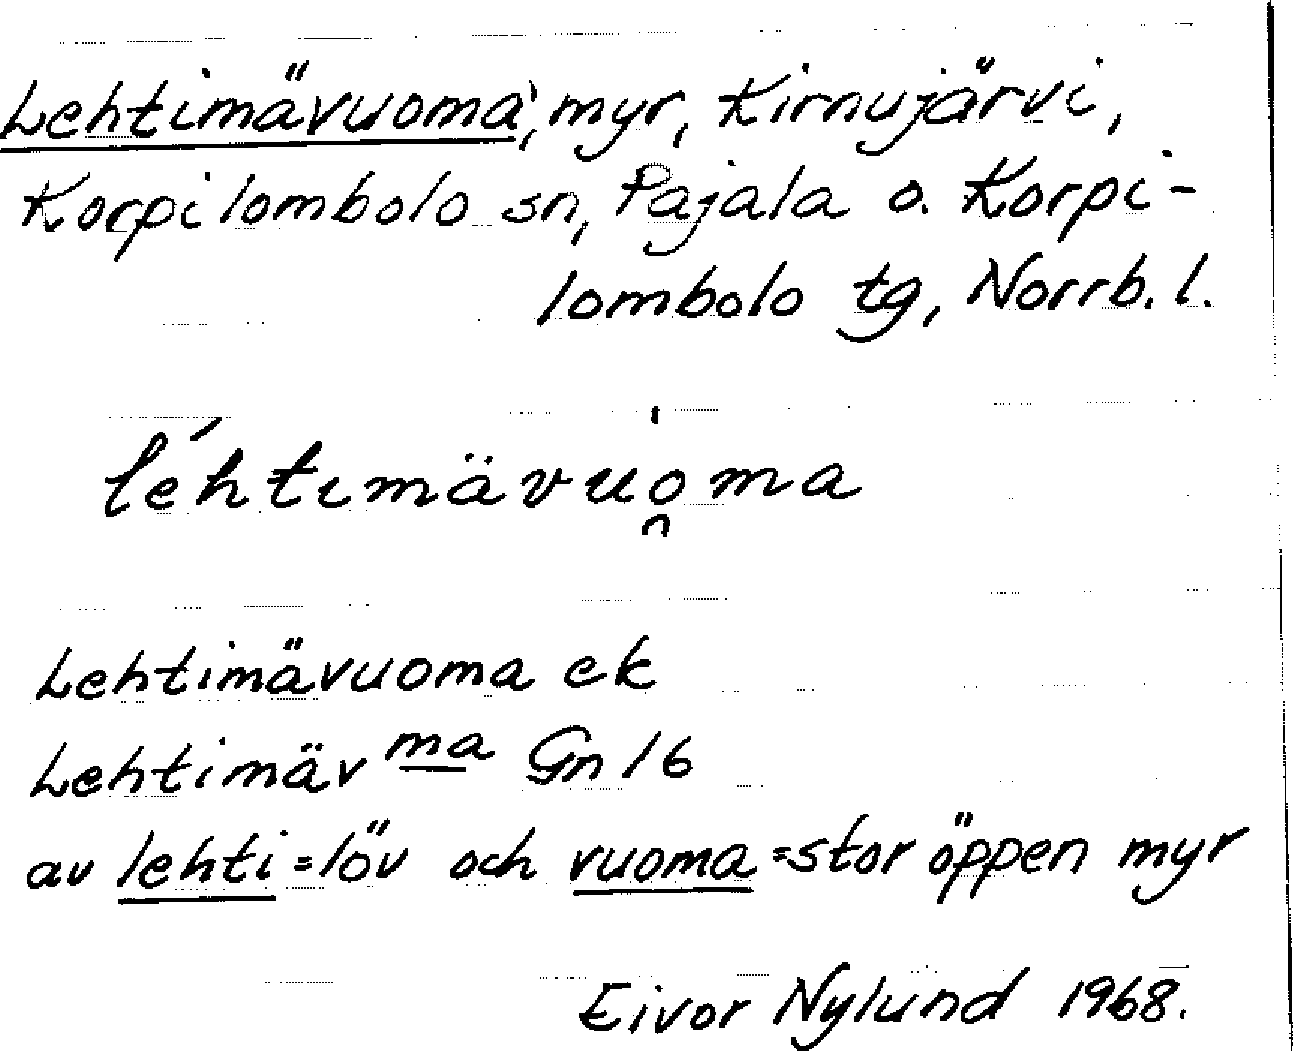 Lehtimävuoma, myr, Kirnujärvi,
Korpilombolo sn, Pajala o. Korpi-
lombolo tg, Norrb. l.
léhtimävuo̯ma
Lehtimävuoma ek
Lehtimäv ma Gn 16
av lehti = löv och vuoma = stor öppen myr
Eivor Nylund 1968.